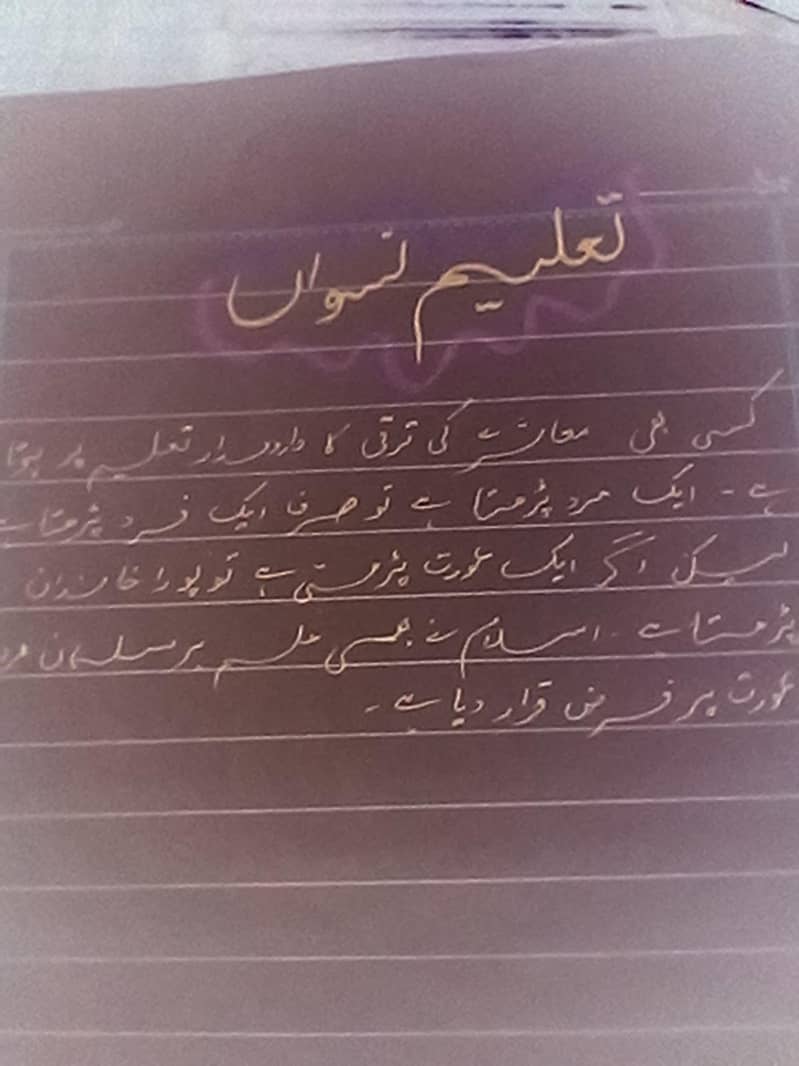 تعلیم نسواں
کسی بھی معاشرے کی ترقی کا دارومدار تعلیم پر ہوتا
ہے ۔ ایک مرد پڑھتا ہے تو صرف ایک فرد پڑھتا ہے
لیکن اگر ایک عورت پڑھتی ہے تو پورا خاندان
پڑھتا ہے ۔ اسلام نے بھی علم ہر مسلمان مرد
عورت پر فرض قرار دیا ہے ۔